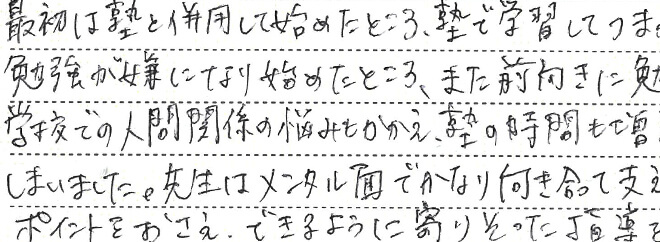 最初は塾と併用して始めたところ、塾で学習してつま
勉強が嫌になり始めたところ、また前向きに勉
学校での人間関係の悩みもかかえ、塾の時間も増
しまいました。先生はメンタル面でかなり向き合って支え
ポイントをおさえ、できるように寄りそった指導を